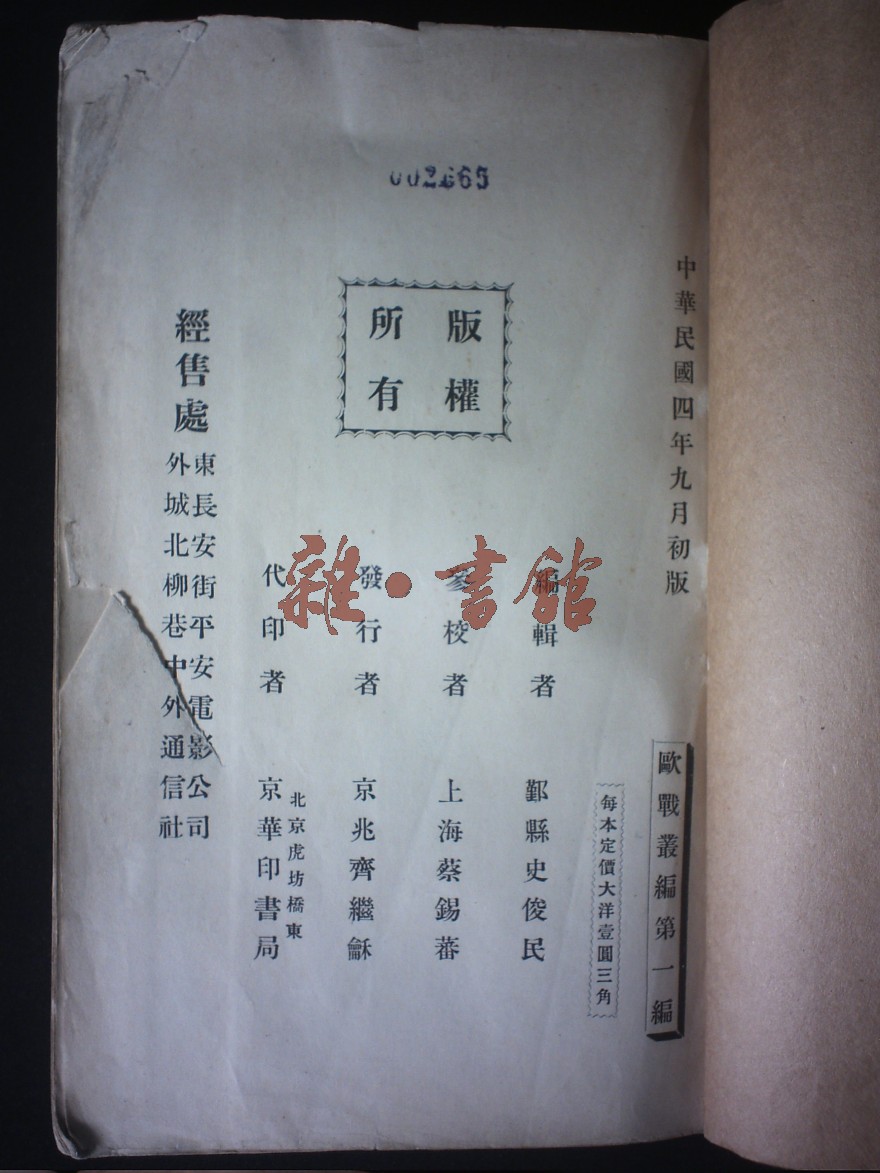 002665
中華民國四年九月初版
歐戰叢編第一編
每本定價大洋壹圓三角
版權
所有
編輯者 鄞縣史俊民
參校者 上海蔡錫蕃
發行者 京兆齊繼龢
代印者 北京虎坊橋東
京華印書局
經售處
東長安街平安電影公司
外城北柳巷中外通信社
雜·書館